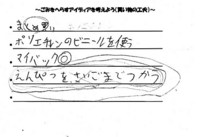 ~ごみをへらすアイディアを考えよう(買い物の工夫)~
・まとめ買い
・ポリエチレンのビニールを使う
・マイバック◎
・えんぴつをさいごまでつかう
・